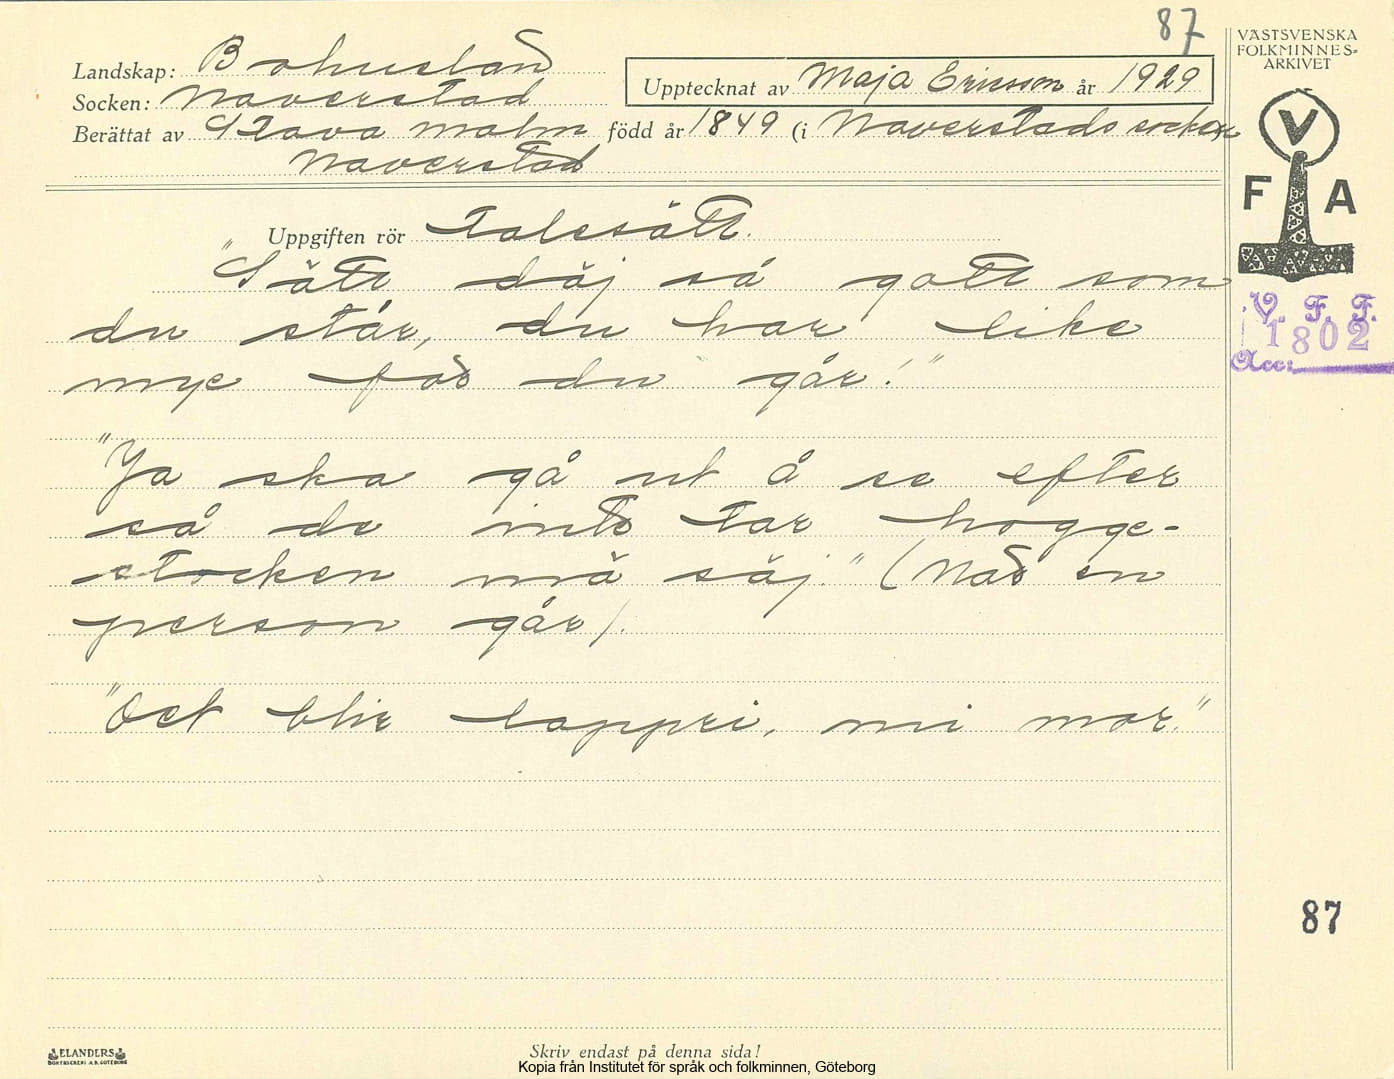 87
VÄSTSVENSKA
FOLKMINNES-
ARKIVET
Landskap: Bohuslän
Upptecknat av Maja Ericsson år 1929
Socken: Naverstad
Berättat av Stava Malm född år 1849 (i Naverstads socken
Naverstad
V
F A
Uppgiften rör talesätt.
"Sätt däj så gott som
du står, du har like
mye för du går!"
V. F. F.
1802
Acc:
"Ja ska gå ut å se efter
så de inte tar hogge-
stocken mä säj." (När en
person går).
"Oct blir lappri, mi mor."
87
ELANDERS
BOKTRYCKERI A.B. GÖTEBORG
Skriv endast på denna sida!
Kopia från Institutet för språk och folkminnen, Göteborg